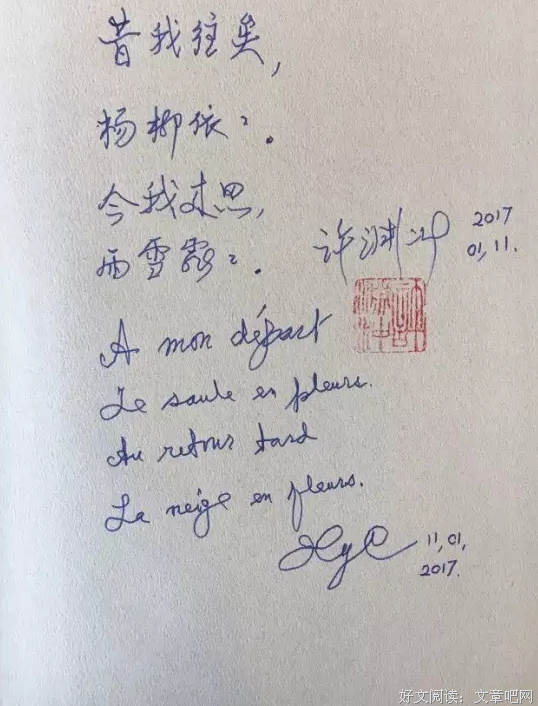 昔我往矣，
杨柳依〻。
今我来思，
雨雪霏〻。
许渊冲
2017
01,11.
A mon départ
Le saule en pleurs.
Au retour tard
La neige en pleurs.
XyC
11,01,
2017.
好文阅读：文章吧网